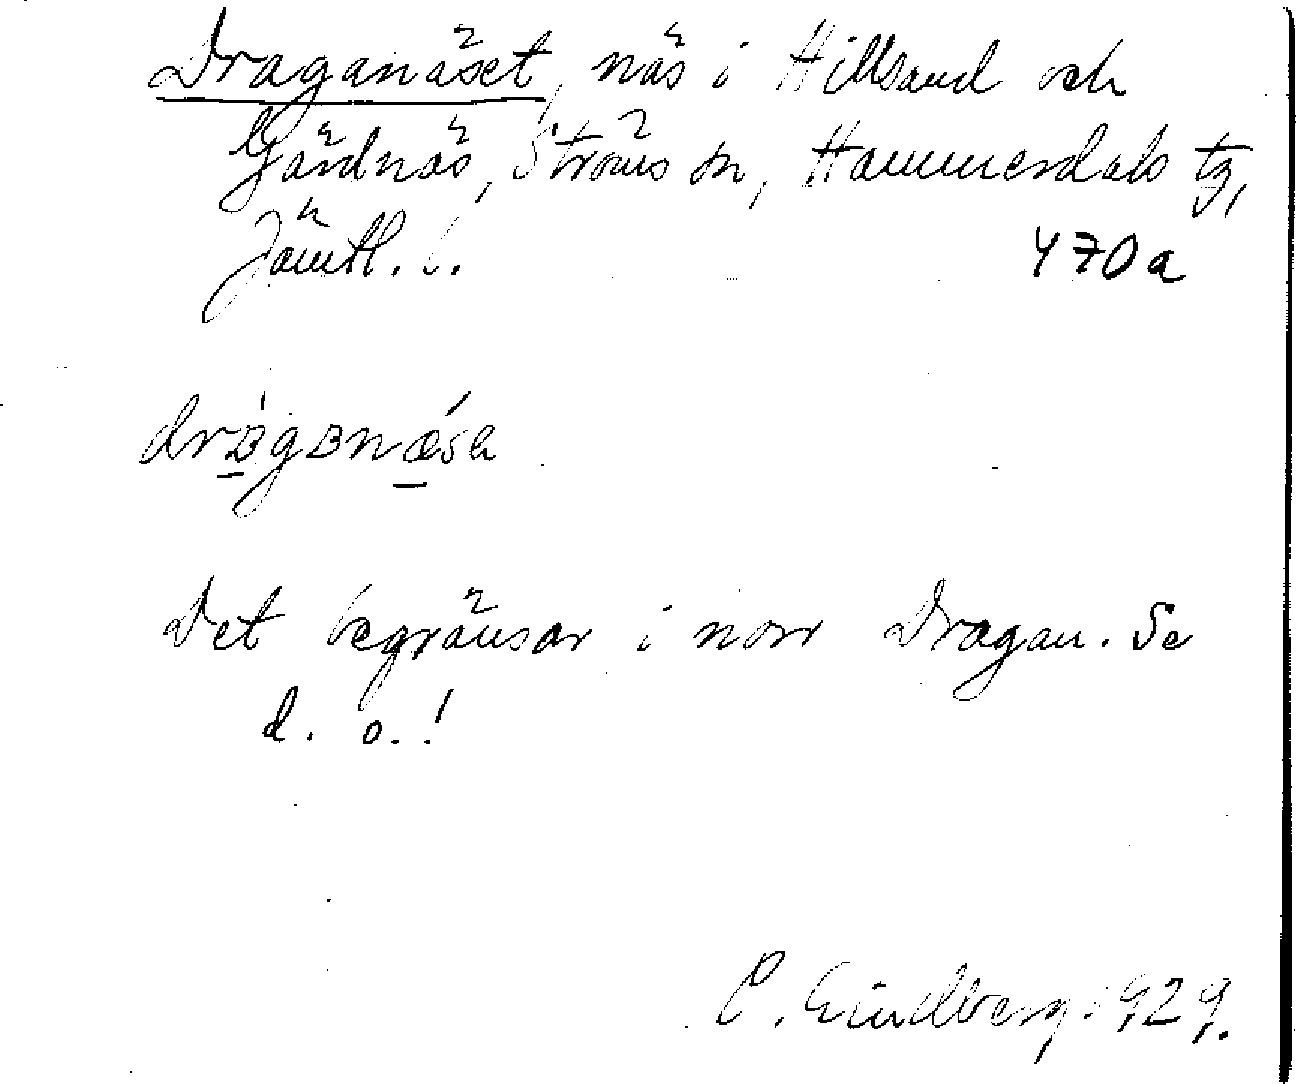 Draganäset, näs i Hillsand och
Gärdnäs, Ströms sn, Hammerdals tg,
Jämtl. l.
470a
drägɜnǽsɐ
Det begränsar i norr Dragan. Se
d. o.!
C. Lindberg 1929.